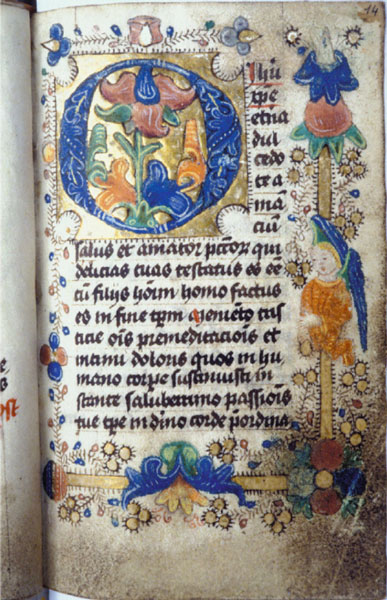 14
O Ihu
xpe
etna
dul
cedo
te a
man
ciū
salus et amator pctor̄ qui
delicias tuas testatus es eē
cū filijs hoīm homo factus
es in fine tpm memēto tris
ticie oīs premeditacioīs et
intimi doloris quos in hu
mano corpe sustinuisti in
stante saluberrimo passioīs
tue tpe in diīno corde pordina